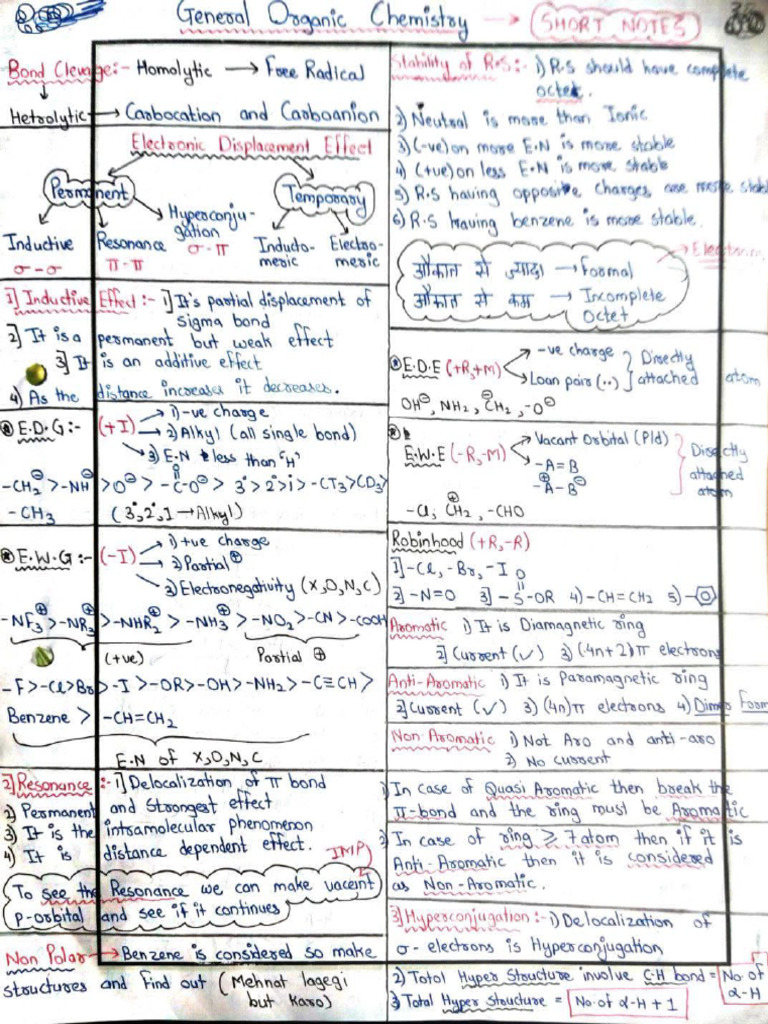 General Organic Chemistry → SHORT NOTES
Bond Clevage:- Homolytic → Free Radical
Hetrolytic → Carbocation and Carboanion
Electronic Displacement Effect
Permanent
Temporary
Inductive
σ-σ
Resonance
π-π
Hyperconju-
gation
σ-π
Inducto-
meric
Electro-
meric
1] Inductive Effect:- 1] It's partial displacement of
sigma bond
2] It is a permanent but weak effect
3] It is an additive effect
4) As the distance increases it decreases.
E.D.G:- (+I) → 1) -ve charge
→ 2) Alkyl (all single bond)
→ 3) E.N less than 'H'
-CH₂⊖ > -NH⊖ > O⊖ > -C(=O)-O⊖ > 3° > 2° > 1 > -CT₃ > CD₃ >
-CH₃ (3°, 2°, 1 → Alkyl)
E.W.G:- (-I) → 1) +ve charge
→ 2) Partial ⊕
→ 3) Electronegativity (X,O,N,C)
-NF₃⊕ > -NR₃⊕ > -NHR₂⊕ > -NH₃⊕ > -NO₂ > -CN > -COOH
(+ve) Partial ⊕
-F > -Cl > Br > -I > -OR > -OH > -NH₂ > -C≡CH >
Benzene > -CH=CH₂
E.N of X,O,N,C
2] Resonance :- 1] Delocalization of π bond
2) Permanent and Strongest effect
3) It is the intramolecular phenomenon
4) It is distance dependent effect.
IMP
To see the Resonance we can make vaceint
p-orbital and see if it continues
Non Polar → Benzene is considered so make
structures and find out (Mehnat lagegi
but karo)
Stability of R.S:- 1) R.S should have complete
octet.
2) Neutral is more than Ionic
3) (-ve) on more E.N is more stable
4) (+ve) on less E.N is more stable
5) R.S having opposite charges are more stab
6) R.S having benzene is more stable.
औकात से ज़्यादा → Formal
औकात से कम → Incomplete
Octet
E.D.E (+R,+M) → -ve charge
→ Loan pairs (..)
Directly
attached atom
OH⊖, NH₂, ⊖CH₂, -O⊖
E.W.E (-R,-M) → Vacant Orbital (P/d)
→ -A=B
→ -A⊕-B⊖
Directly
attached
atom
-Cl, ⊕CH₂, -CHO
Robinhood (+R,-R)
1] -Cl, -Br, -I
2] -N=O 3] -S(=O)-OR 4) -CH=CH₂ 5) -⌬
Aromatic 1) It is Diamagnetic ring
2] Current (✓) 3) (4n+2)π electrons
Anti-Aromatic 1) It is Paramagnetic ring
2] Current (✓) 3) (4n)π electrons 4) Dimer Form
Non-Aromatic 1) Not Aro and anti-aro
2) No current
1) In case of Quasi Aromatic then break the
π-bond and the ring must be Aromatic
In case of ring ≥ 7 atom then if it is
Anti-Aromatic then it is considered
as Non-Aromatic.
3] Hyperconjugation:- 1) Delocalization of
σ-electrons is Hyperconjugation
2) Total Hyper Structure involve C-H bond = No. of
α-H
3) Total Hyper structure = No. of α-H + 1